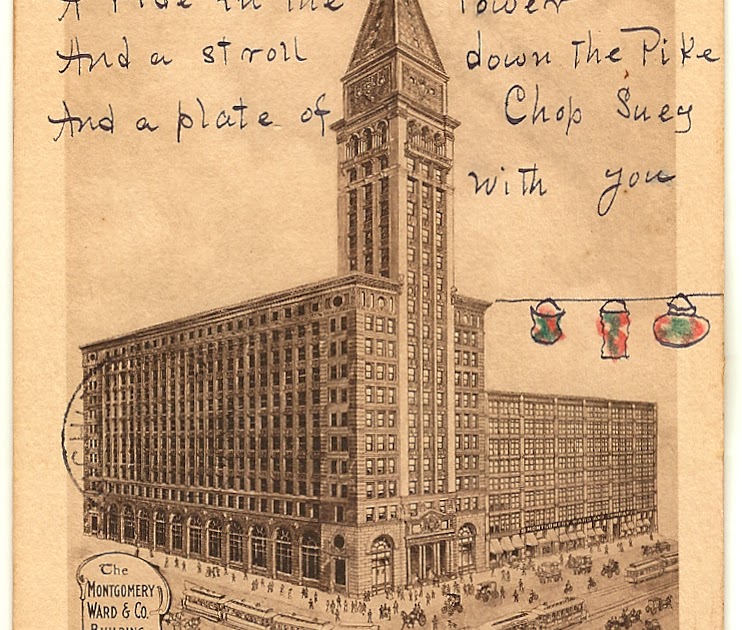 A ride in the Tower
And a stroll down The Pike
And a plate of Chop Suey
With you
The
MONTGOMERY
WARD & CO.
BUILDING